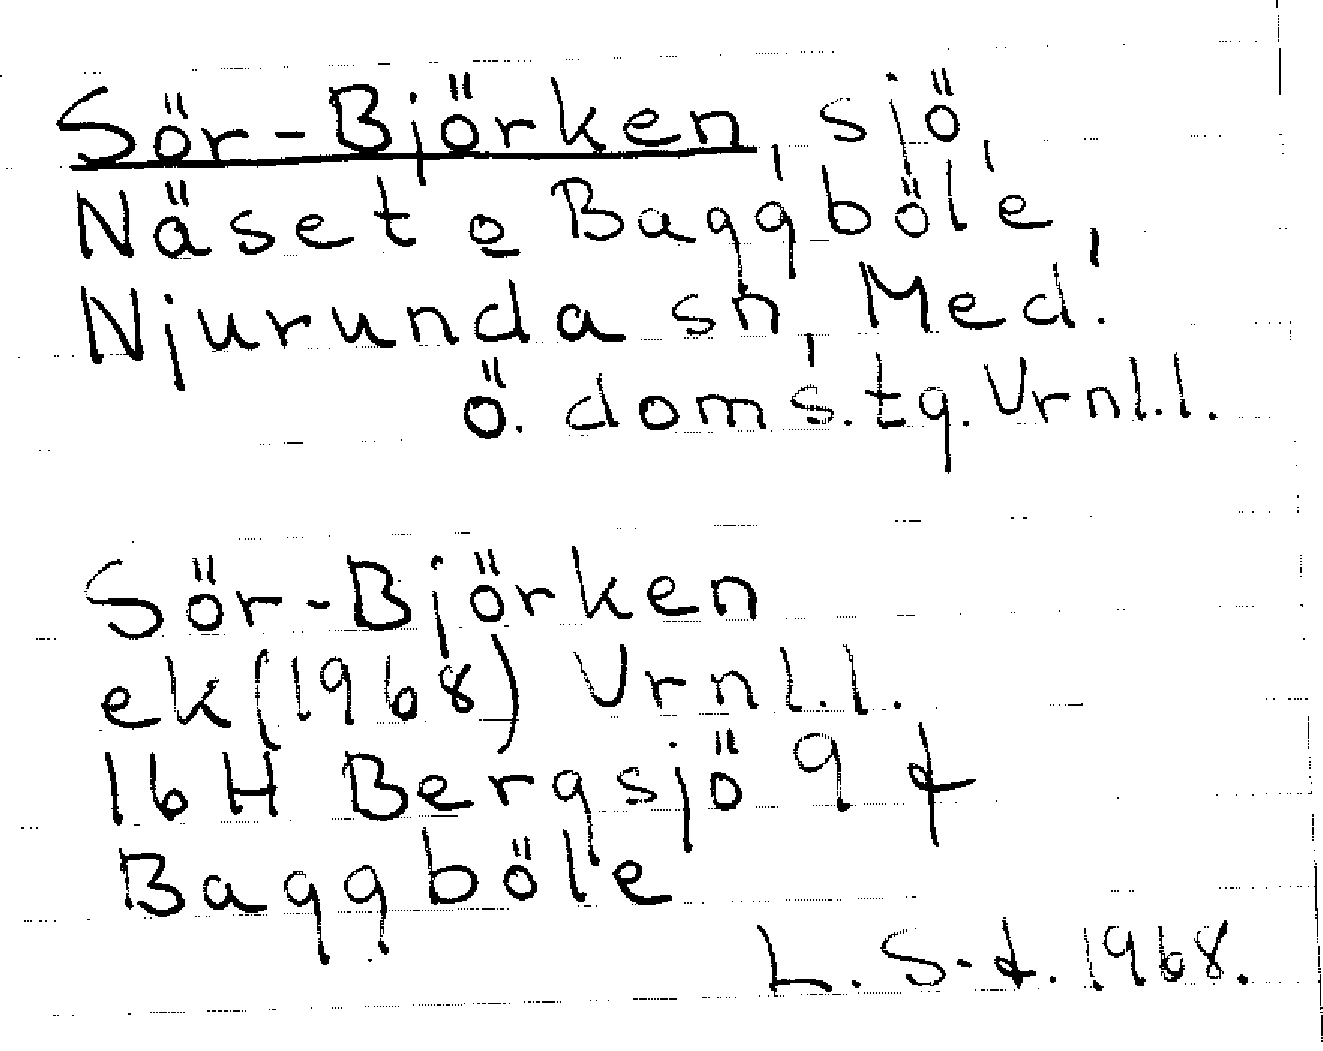 Sör-Björken, sjö,
Näset o Baggböle,
Njurunda sn, Med.
Ö. doms.tg. Vrnl.l.
Sör-Björken
ek (1968) Vrnl.l.
16 H Bergsjö 9 d
Baggböle
L. S-d. 1968.